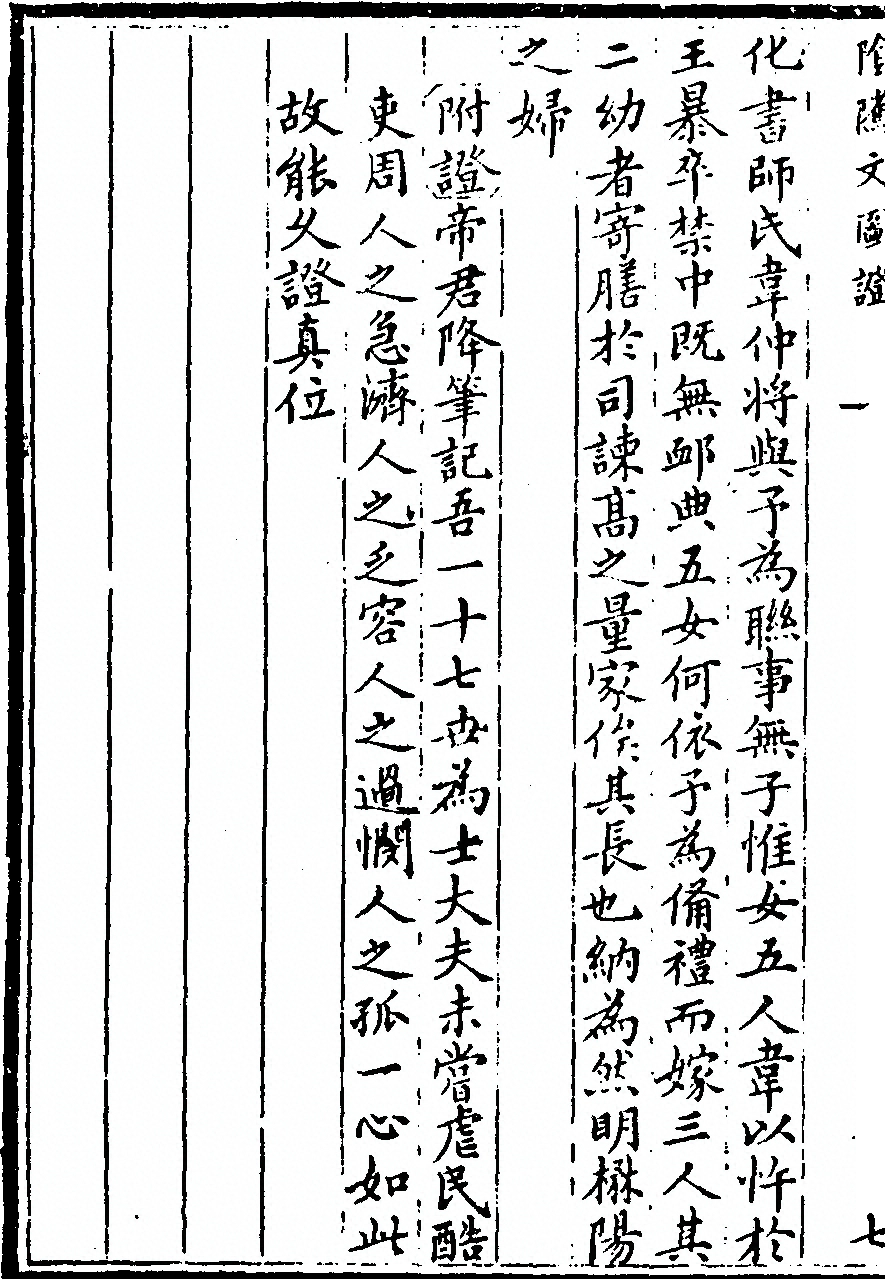 陰隲文匯證
一
七
化書師氏韋仲將與予為聯事無子惟女五人韋以忤於
王暴卒禁中既無䘏典五女何依予為備禮而嫁三人其
二幼者寄膳於司諫高之量家俟其長也納為然明楙陽
之婦
附證帝君降筆記吾一十七世為士大夫未嘗虐民酷
吏周人之急濟人之乏容人之過憫人之孤一心如此
故能乆證真位